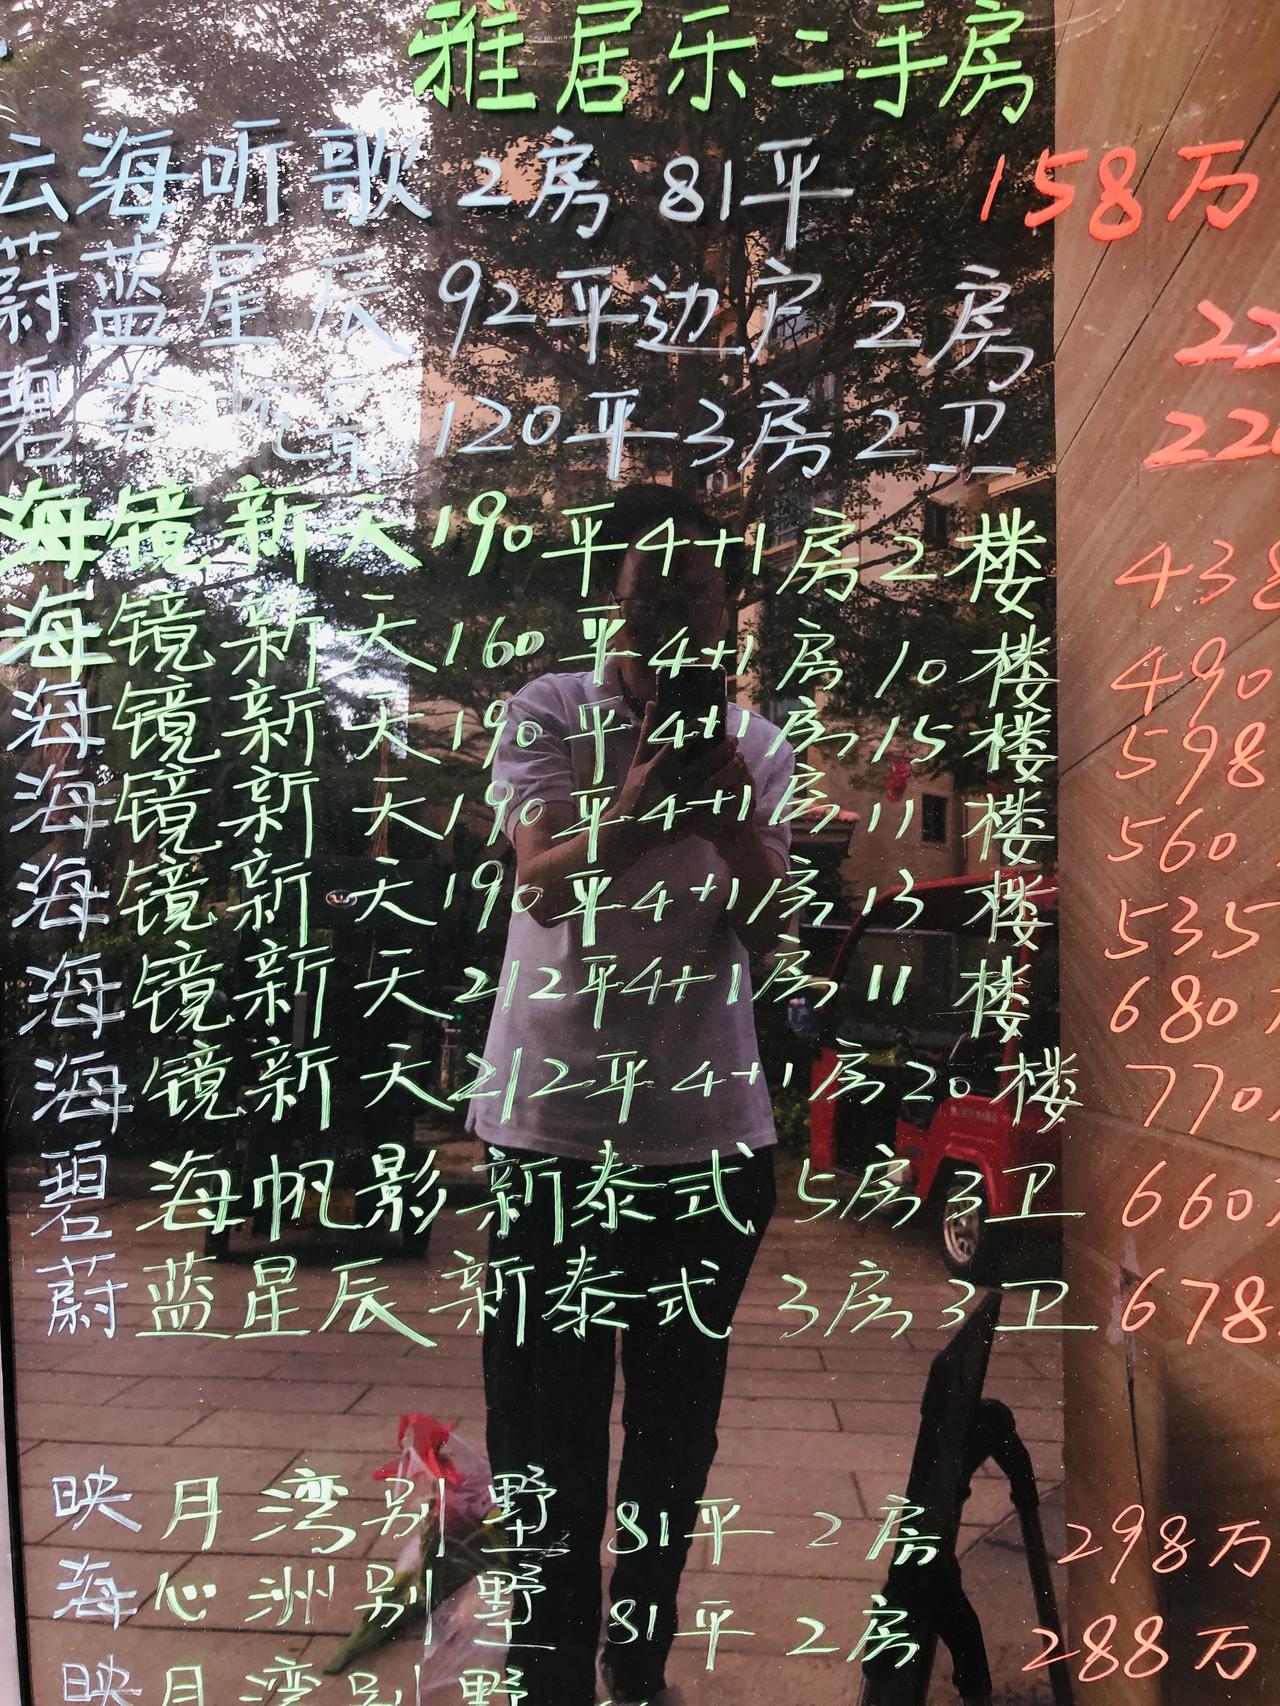 雅居乐二手房
云海听歌 2房 81平 158万
蔚蓝星辰 92平边户 2房 22
碧海帆影 120平3房2卫 22
海镜新天190平4+1房2楼 438
海镜新天160平4+1房10楼 490
海镜新天190平4+1房15楼 598
海镜新天190平4+1房11楼 560
海镜新天190平4+1房13楼 535
海镜新天212平4+1房11楼 680
海镜新天212平4+1房20楼 770
碧海帆影新泰式 5房3卫 660
蔚蓝星辰新泰式 3房3卫 678
映月湾别墅 81平 2房 298万
海心洲别墅 81平 2房 288万
映月湾别墅